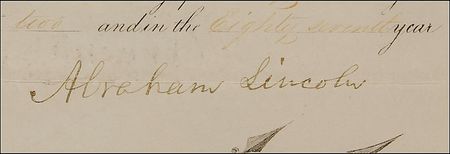 two and in the Eighty seventh year
Abraham Lincoln